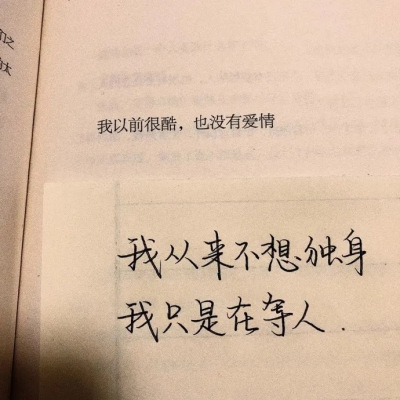 我以前很酷，也没有爱情
我从来不想独身
我只是在等人.